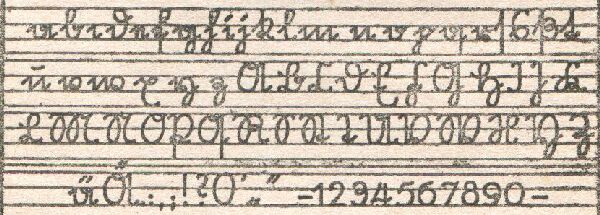 a b c d e f g h i j k l m n o p q r ſ s ß t
u v w x y z A B C D E F G H I J K
L M N O P Q R S St T U V W X Y Z
ü Ö . : , ; ! ? ' „ “ - 1 2 3 4 5 6 7 8 9 0 -